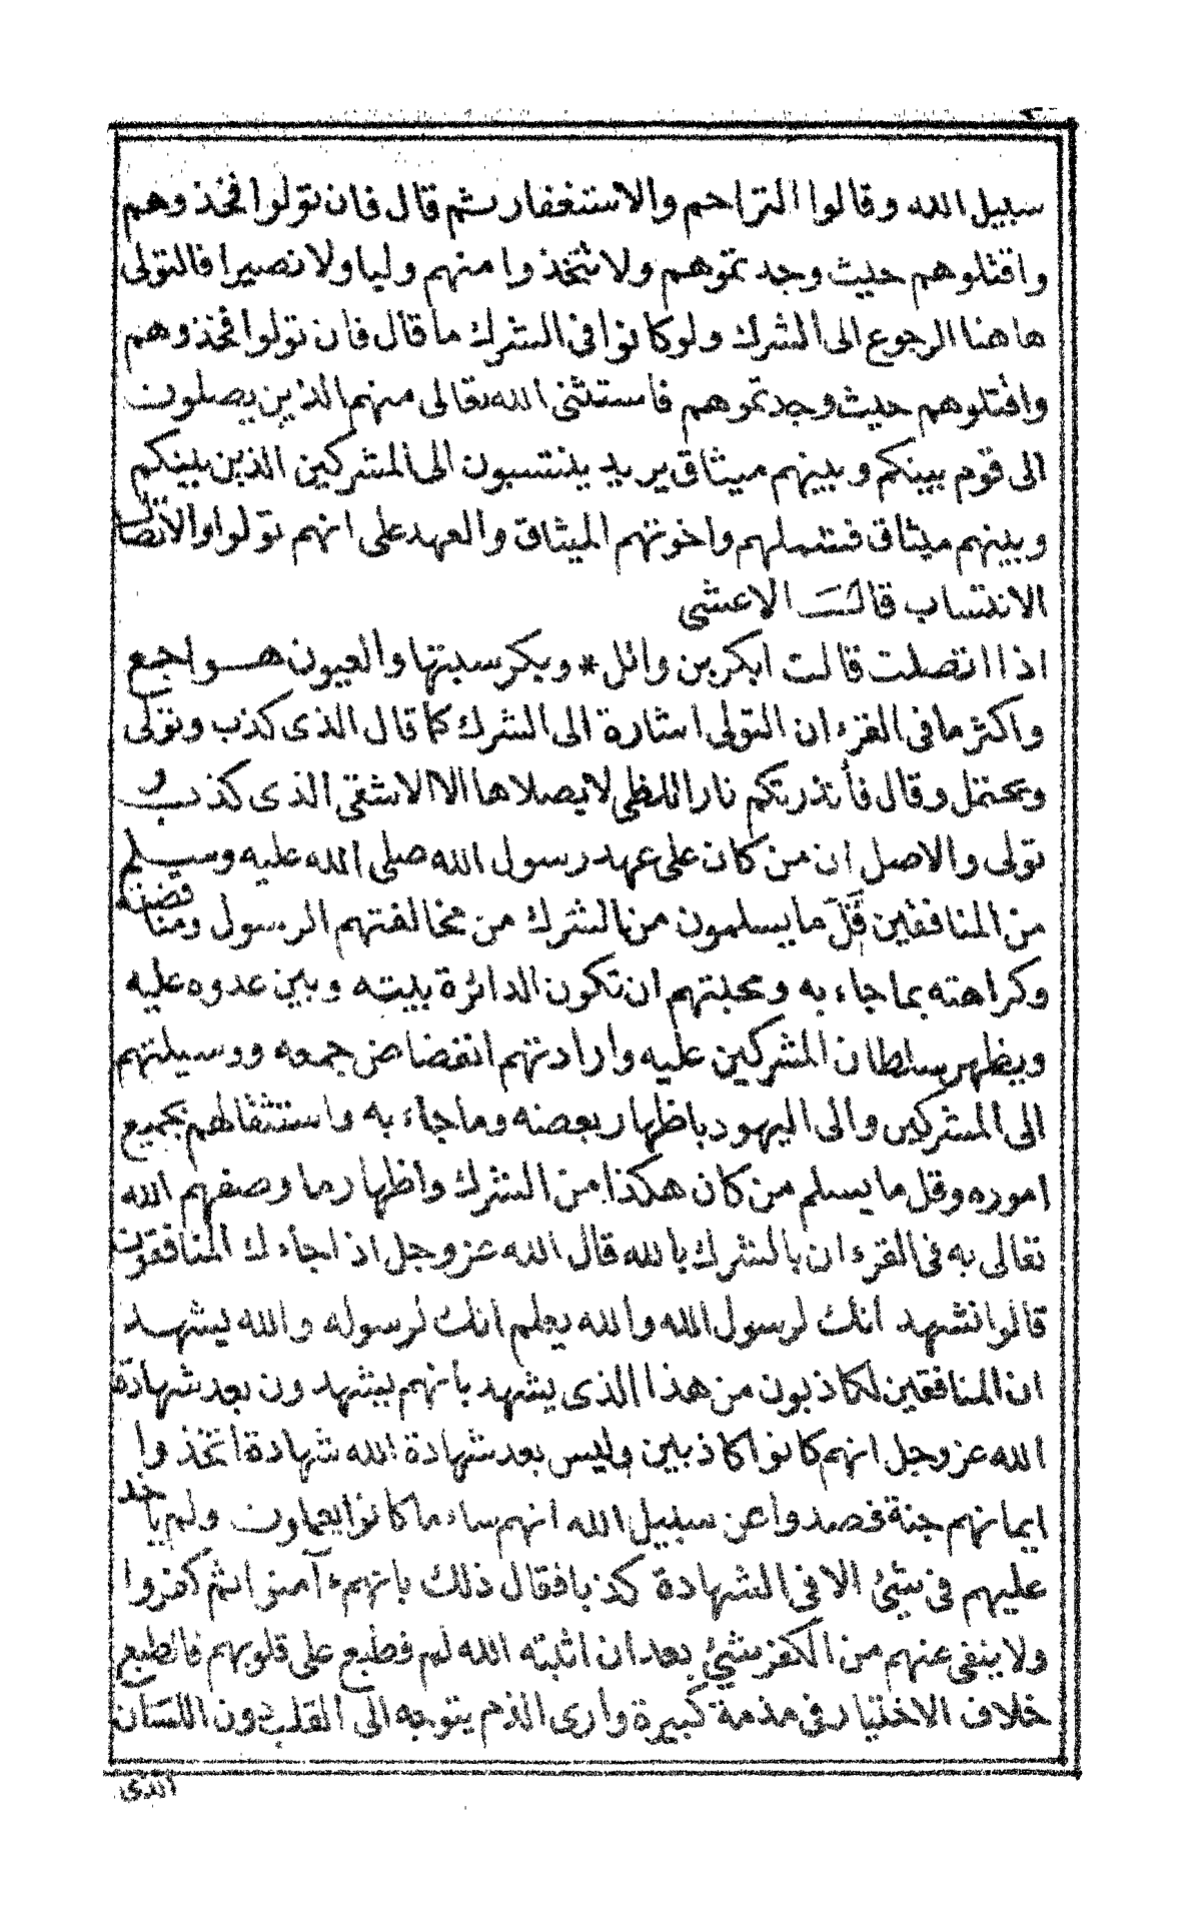 سبيل الله وقالوا التراحم والاستغفار ثم قال فان تولوا فخذوهم
واقتلوهم حيث وجدتموهم ولا تتخذوا منهم وليا ولا نصيرا فالتولى
هاهنا الرجوع الى الشرك ولو كانوا فى الشرك ما قال فان تولوا فخذوهم
واقتلوهم حيث وجدتموهم فاستثنى الله تعالى منهم الذين يصلون
الى قوم بينكم وبينهم ميثاق يريد ينتسبون الى المشركين الذين بينكم
وبينهم ميثاق فتشملهم واخوتهم الميثاق والعهد على انهم تولوا والاتصال
الانتساب قالت الاعشى
اذا اتصلت قالت ابكر بن وائل * وبكر سبتها والعيون هواجع
واكثر ما فى القرءان التولى اشارة الى الشرك كما قال الذى كذب وتولى
ويحتمل وقال فأنذرتكم نارا تلظى لا يصلاها الا الاشقى الذى كذب و
تولى والاصل ان من كان على عهد رسول الله صلى الله عليه وسلم
من المنافقين قلّ ما يسلمون من الشرك من مخالفتهم الرسول ومناقضته
وكراهته بما جاء به ومحبتهم ان تكون الدائرة بيته وبين عدوه عليه
ويظهر سلطان المشركين عليه وارادتهم انفضاض جمعه ووسيلتهم
الى المشركين والى اليهود باظهار بعضه وما جاء به واستثقالهم بجميع
اموره وقل ما يسلم من كان هكذا من الشرك واظهار ما وصفهم الله
تعالى به فى القرءان بالشرك بالله قال الله عز وجل اذا جاءك المنافقون
قالوا نشهد انك لرسول الله والله يعلم انك لرسوله والله يشهد
ان المنافقين لكاذبون من هذا الذى يشهد بانهم يشهدون بعد شهادة
الله عز وجل انهم كانوا كاذبين وليس بعد شهادة الله شهادة اتخذوا
ايمانهم جنة فصدوا عن سبيل الله انهم ساء ما كانوا يعملون ولم ياخد
عليهم فى شئ الا فى الشهادة كذبا فقال ذلك بانهم ءآمنوا ثم كفروا
ولا ينفى عنهم من الكفر شئ بعد ان اثبته الله لهم فطبع على قلوبهم فالطبع
خلاف الاختيار فى مذمة كبيرة وأرى الذم يتوجه الى القلب دون اللسان
الذى